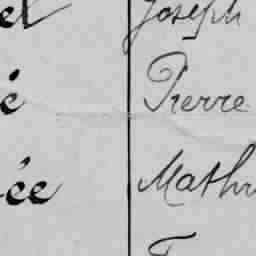 el Joseph
é Pierre
ée Mathu